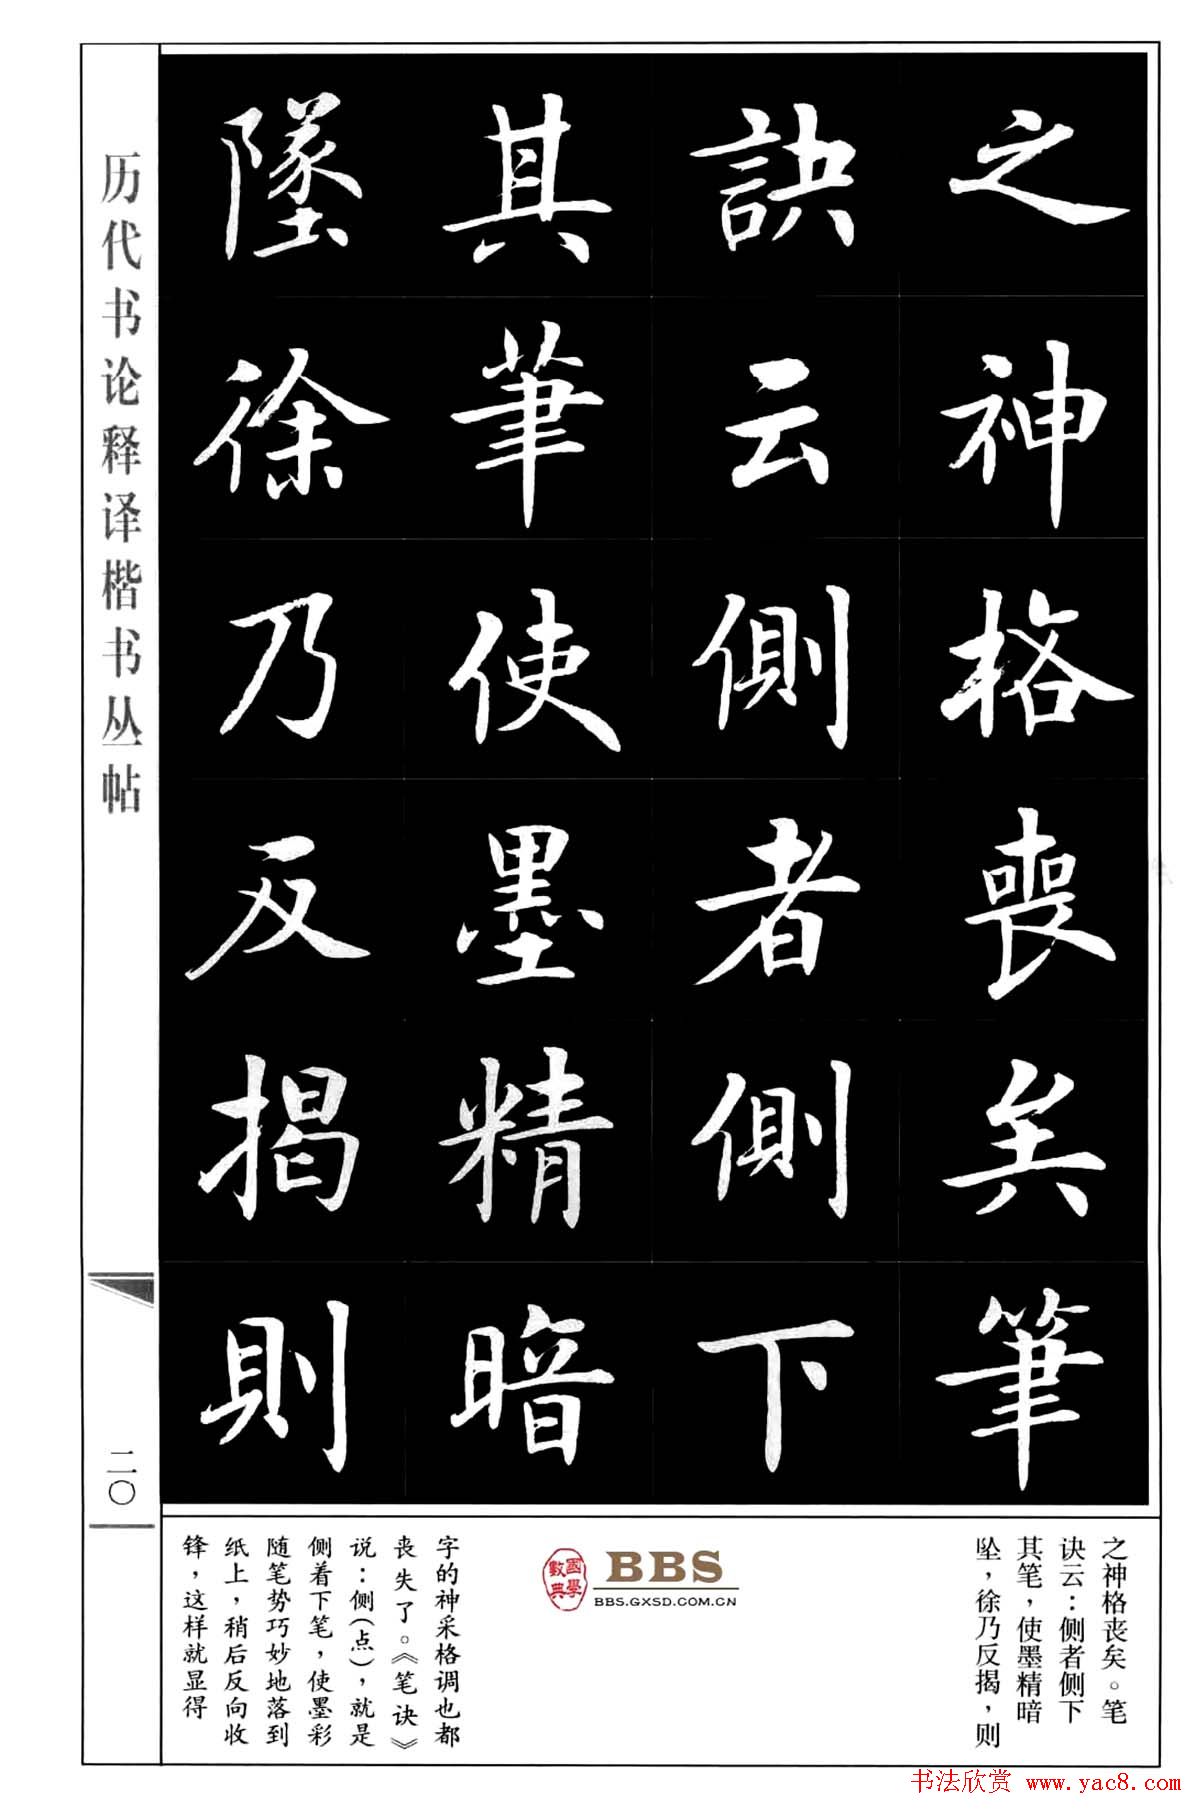 之神格喪矣筆
訣云側者側下
其筆使墨精暗
墜徐乃反揭則
历代书论释译楷书丛帖
二〇
之神格丧矣。笔
诀云：侧者侧下
其笔，使墨精暗
坠，徐乃反揭，则
字的神采格调也都
丧失了。《笔诀》
说：侧(点)，就是
侧着下笔，使墨彩
随笔势巧妙地落到
纸上，稍后反向收
锋，这样就显得
國學
數典
BBS
BBS.GXSD.COM.CN
书法欣赏 www.yac8.com